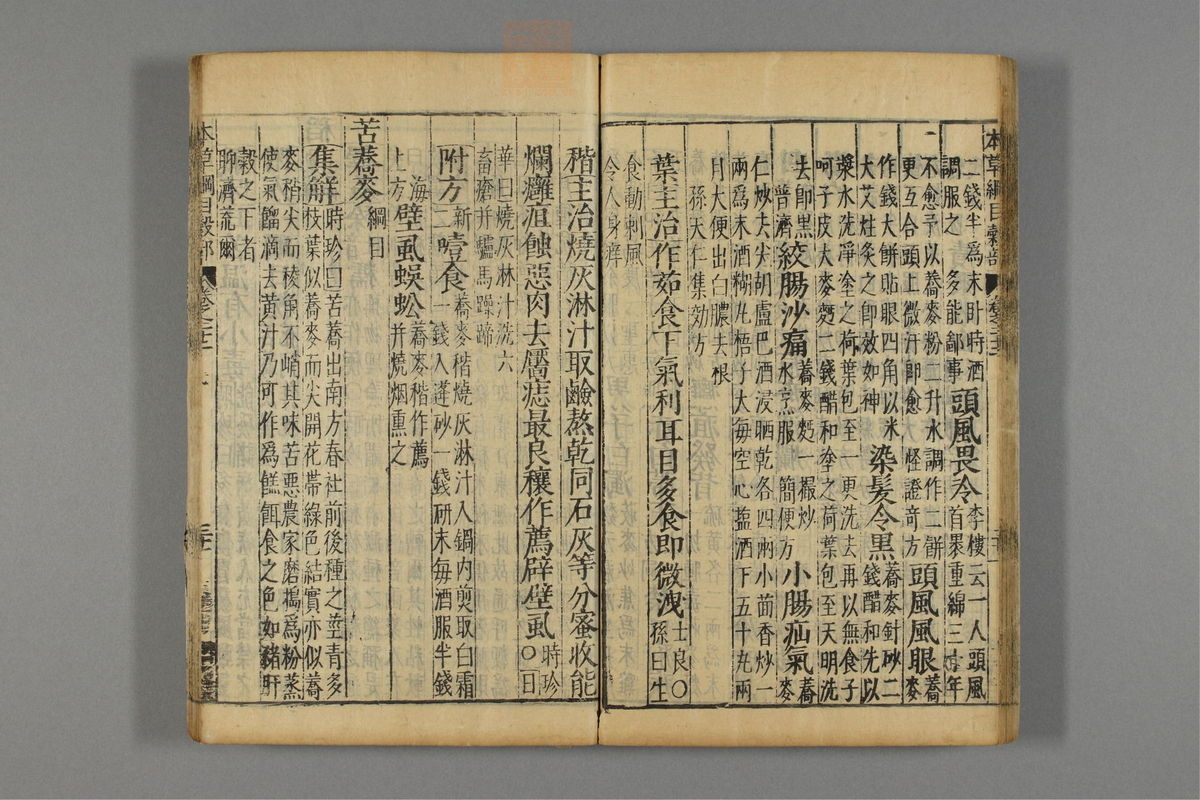 本草綱目穀部 卷之二十二
二錢半爲末卧時酒
調服之 多能鄙事 頭風畏冷 李樓云一人頭風
首裹重綿三十年
不愈予以蕎麥粉二升水調作二餅
更互合頭上微汗卽愈 怪證奇方 頭風風眼 蕎麥
作錢大餅貼眼四角以米
大艾炷灸之卽效如神 染髮令黑 蕎麥針砂二
錢醋和先以
漿水洗淨塗之荷葉包至一更洗去再以無食子
呵子皮大麥麪二錢醋和塗之荷葉包至天明洗
去卽黑
普濟 絞腸沙痛 蕎麥麪一撮炒
水烹服 簡便方 小腸疝氣 蕎麥
仁炒去尖胡盧巴酒浸晒乾各四兩小茴香炒一
兩爲末酒糊丸梧子大每空心鹽酒下五十丸兩
月大便出白膿去根
孫天仁集効方
葉主治作茹食下氣利耳目多食卽微洩 士良○
孫曰生
食動刺風
令人身痒
稭主治燒灰淋汁取鹼熬乾同石灰等分蜜收能
爛癰疽蝕惡肉去靨痣最良穰作薦辟壁虱 時珍
○日
華曰燒灰淋汁洗六
畜瘡并驢馬躁蹄
附方 新二 噎食 蕎麥稭燒灰淋汁入鍋內煎取白霜
一錢入蓬砂一錢研末每酒服半錢
海上方 壁虱蜈蚣 蕎麥稭作薦
并燒烟熏之
苦蕎麥 綱目
集解 時珍曰苦蕎出南方春社前後種之莖青多
枝葉似蕎麥而尖開花帶綠色結實亦似蕎
麥稍尖而稜角不峭其味苦惡農家磨搗爲粉蒸
使氣餾滴去黃汁乃可作爲糕餌食之色如豬肝
穀之下者
聊濟荒爾
本草綱目穀部